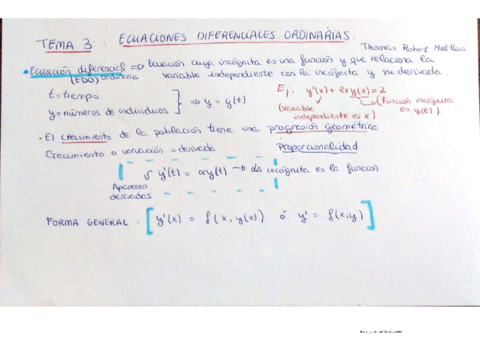 TEMA 3: ECUACIONES DIFERENCIALES ORDINARIAS.
Thomas Robert Malthus
• Ecuación diferencial ⇒ Ecuación cuya incógnita es una función y que relaciona la
(EDO) ordinaria variable independiente con la incógnita y su derivada.
t = tiempo
y = números de individuos } ⇒ y = y(t)
Ej: y'(x) + 2xy(x) = 2
(Variable independiente es x)
(Función incógnita es y(t))
• El crecimiento de la población tiene una progresión geométrica
Crecimiento o variación = derivada Proporcionalidad
y'(t) = αy(t) → La incógnita es la función
Aparecen
derivadas
FORMA GENERAL: [y'(x) = f(x, y(x)) ó y' = f(x,y)]